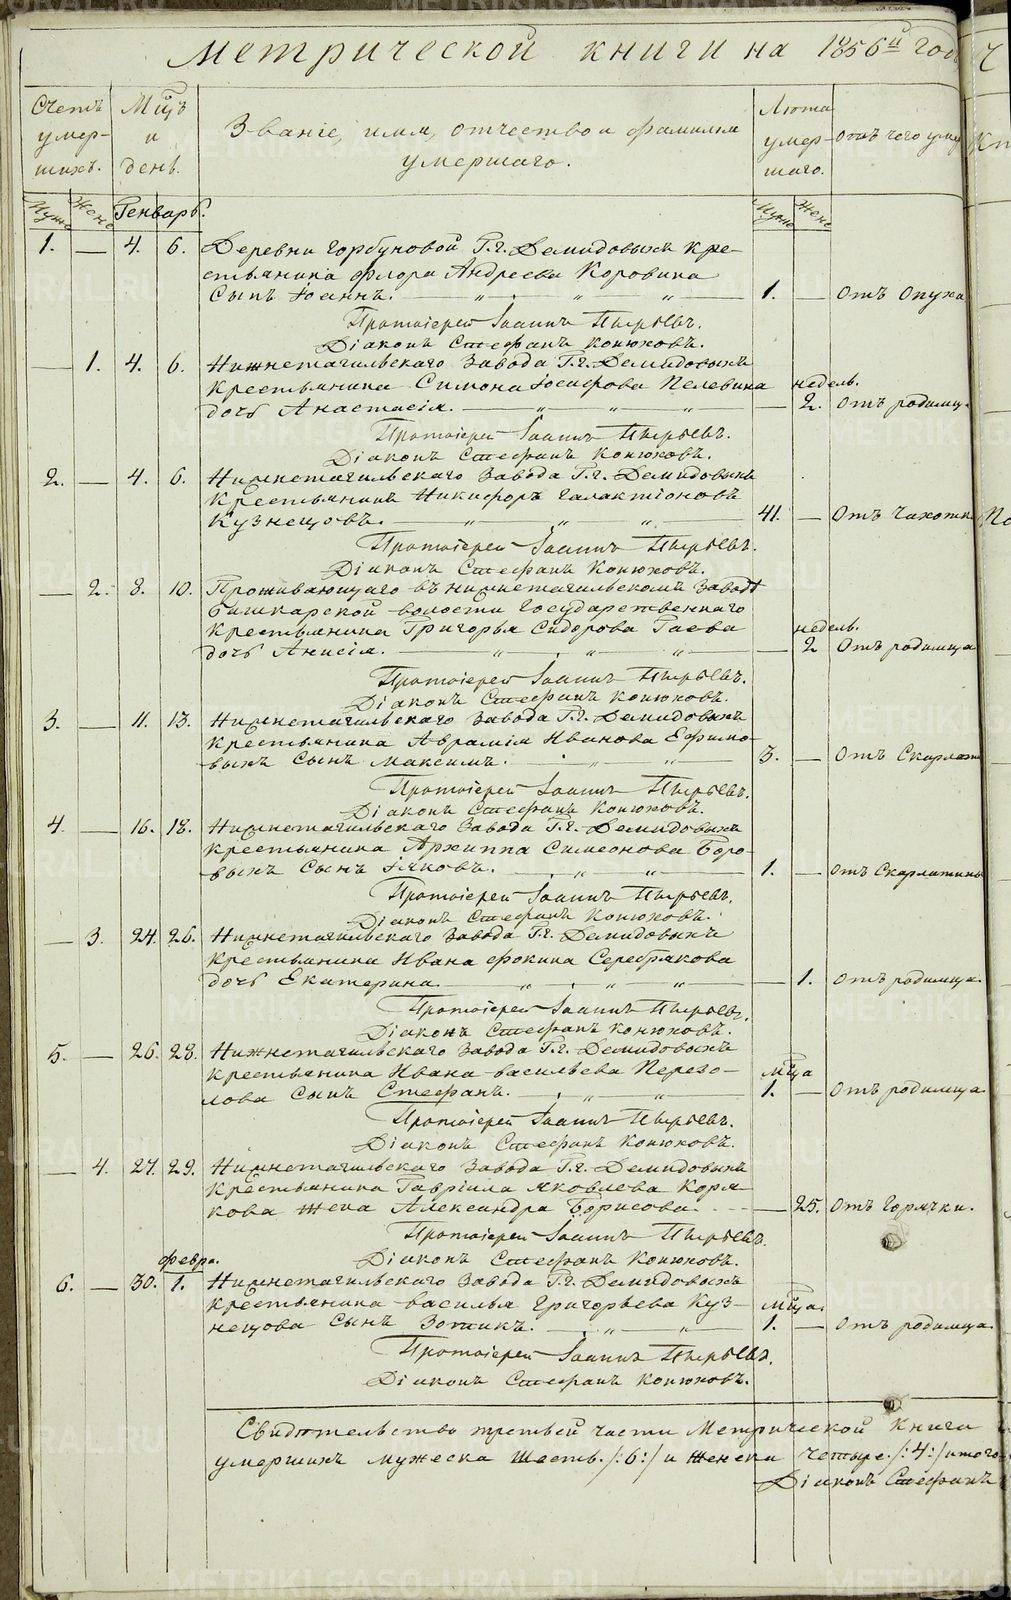 Метрической книги на 1856й годъ
Счетъ умер- шихъ.
Мцъ и день.
Званіе, имя, отчество и фамилія умершаго.
Лѣта умер- шаго.
Отъ чего уме
Муж Жен Генварь. Муж Жен
1. — 4. 6. Деревни Горбуновой Г.г. Демидовыхъ кре-
стьянина Флора Андреева Коровина
Сынъ Іоаннъ. 1. — Отъ Опуха
Протоіерей Іоаннъ Пырьевъ.
Діаконъ Стефанъ Конюховъ.
— 1. 4. 6. Нижнетагильскаго Завода Г.г. Демидовыхъ
Крестьянина Симона Іосифова Пелевина недель.
дочь Анастасія. — 2. Отъ родимца.
Протоіерей Іоаннъ Пырьевъ.
Діаконъ Стефанъ Конюховъ.
2. — 4. 6. Нижнетагильскаго Завода Г.г. Демидовыхъ
Крестьянинъ Никифоръ Галактіоновъ
Кузнецовъ. 41. — Отъ Чахотки
Протоіерей Іоаннъ Пырьевъ.
Діаконъ Стефанъ Конюховъ.
— 2. 8. 10. Проживающаго въ Нижнетагильскомъ Заводѣ
Башкарской волости Государственнаго
Крестьянина Григорья Сидорова Гаева недель.
дочь Анисія. — 2 Отъ родимца
Протоіерей Іоаннъ Пырьевъ.
Діаконъ Стефанъ Конюховъ.
3. — 11. 13. Нижнетагильскаго Завода Г.г. Демидовыхъ
Крестьянина Аврамія Иванова Ефимо-
выхъ Сынъ Максимъ. 3. — Отъ Скарлати
Протоіерей Іоаннъ Пырьевъ.
Діаконъ Стефанъ Конюховъ.
4. — 16. 18. Нижнетагильскаго Завода Г.г. Демидовыхъ
Крестьянина Архиппа Симеонова Боро-
выхъ Сынъ Іяковъ. 1. — Отъ Скарлатины
Протоіерей Іоаннъ Пырьевъ.
Діаконъ Стефанъ Конюховъ.
— 3. 24. 26. Нижнетагильскаго Завода Г.г. Демидовыхъ
Крестьянина Ивана Фокина Серебрякова
дочь Екатерина. — 1. Отъ родимца.
Протоіерей Іоаннъ Пырьевъ.
Діаконъ Стефанъ Конюховъ.
5. — 26. 28. Нижнетагильскаго Завода Г.г. Демидовыхъ
Крестьянина Ивана Васильева Перезо- мца
лова Сынъ Стефанъ. 1. — Отъ родимца
Протоіерей Іоаннъ Пырьевъ.
Діаконъ Стефанъ Конюховъ.
— 4. 27. 29. Нижнетагильскаго Завода Г.г. Демидовыхъ
Крестьянина Гавріила Яковлева Коря-
кова жена Александра Борисова. — 25. Отъ Горячки.
Протоіерей Іоаннъ Пырьевъ.
Діаконъ Стефанъ Конюховъ.
февра.
6. — 30. 1. Нижнетагильскаго Завода Г.г. Демидовыхъ
Крестьянина Василья Григорьева Куз- мца.
нецова Сынъ Зотикъ. 1. — Отъ родимца.
Протоіерей Іоаннъ Пырьевъ.
Діаконъ Стефанъ Конюховъ.
Свидѣтельство третьей части Метрической Книги
умершихъ мужеска Шесть /:6:/ и женска четыре /:4:/ итого
Діаконъ Стефанъ
METRIKI.GASO-URAL.RU